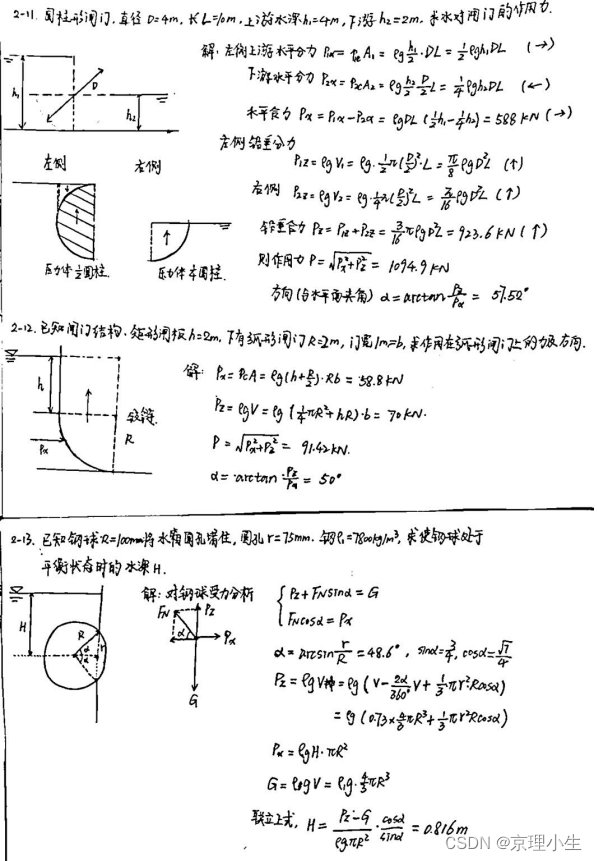 2-11. 圆柱形闸门, 直径 D=4m, 长 L=10m, 上游水深 h₁=4m, 下游 h₂=2m. 求水对闸门的作用力.
解: 左侧上游水平分力 P₁ₓ = P꜀A₁ = ρg h₁/2 · DL = 1/2 ρgh₁DL (→)
下游水平分力 P₂ₓ = P₂꜀A₂ = ρg h₂/2 D/2 L = 1/4 ρgh₂DL (←)
水平合力 Pₓ = P₁ₓ - P₂ₓ = ρgDL (1/2 h₁ - 1/4 h₂) = 588 KN (→)
h₁
D
h₂
左侧铅垂分力
P₁z = ρgV₁ = ρg · 1/2 π(D/2)² · L = π/8 ρgD²L (↑)
左侧
右侧
右侧 P₂z = ρgV₂ = ρg · 1/4 π(D/2)² L = π/16 ρgD²L (↑)
铅垂合力 Pz = P₁z + P₂z = 3/16 πρgD²L = 923.6 KN (↑)
压力体 1/2 圆柱
压力体 1/4 圆柱.
则作用力 P = √(Pₓ²+Pz²) = 1094.9 KN
方向(与水平面夹角) α = arctan Pz/Pₓ = 57.52°
2-12. 已知闸门结构. 矩形闸板 h=2m, 下有弧形闸门 R=2m, 门宽 1m=b, 求作用在弧形闸门上的力及方向.
解: Pₓ = P꜀A = ρg(h+R/2) · Rb = 58.8 KN
h
铰链
R
Pₓ
Pz = ρgV = ρg (1/4 πR² + hR) · b = 70 KN.
P = √(Pₓ²+Pz²) = 91.42 KN.
α = arctan Pz/Pₓ = 50°
2-13. 已知钢球 R=100mm 将水箱圆孔堵住, 圆孔 r=75mm. 钢 ρ₁=7800kg/m³, 求使钢球处于
平衡状态时的水深 H.
解: 对钢球受力分析
H
R
α
α
r
F_N
Pz
α
Pₓ
G
Pz + F_N sinα = G
F_N cosα = Pₓ
α = arcsin r/R = 48.6°, sinα = 3/4, cosα = √7/4
Pz = ρgV排 = ρg (V - 2α/360° V + 1/3 πr² R cosα)
= ρg (0.73 × 4/3 πR³ + 1/3 πr² R cosα)
Pₓ = ρgH · πR²
G = ρ₁gV = ρ₁g · 4/3 πR³
联立上式, H = (Pz - G)/(ρgπR²) · cosα/sinα = 0.816 m
CSDN @京理小生